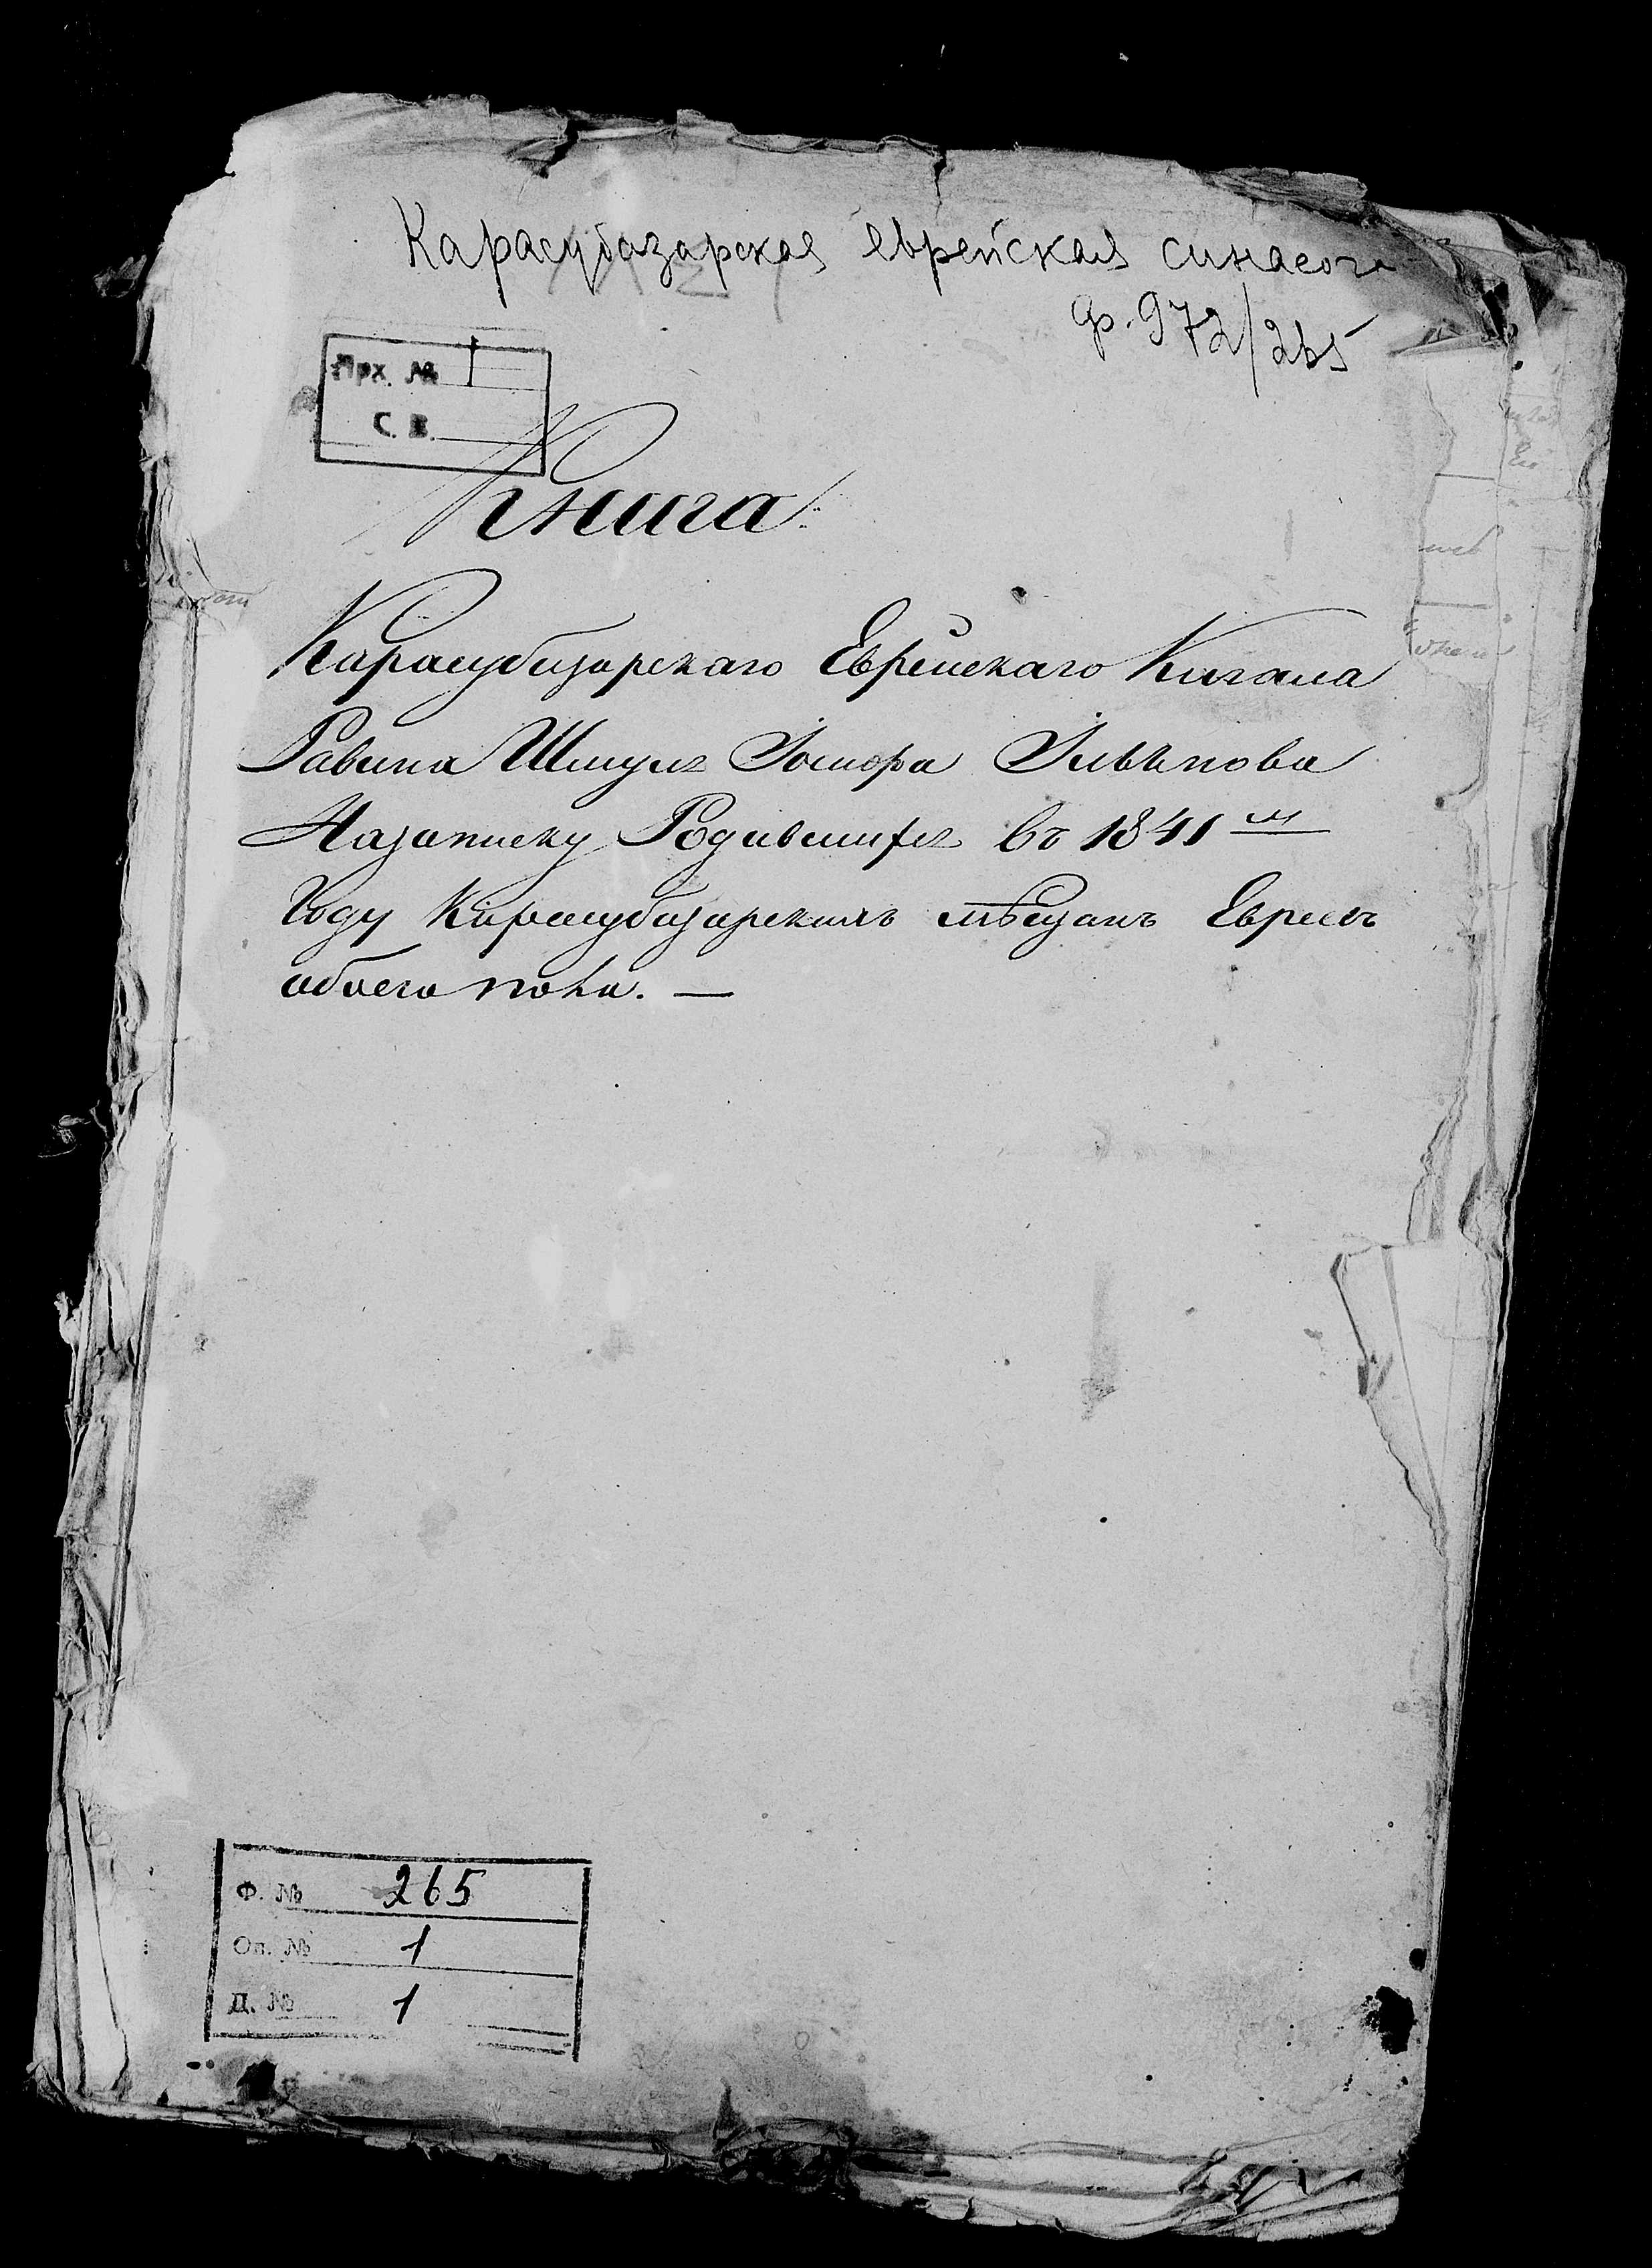 Карасубазарская еврейская синагога
ф. 972/265
Арх. № 1
С. В.
Книга
Карасубазарскаго Еврейскаго Кагала
Равина Шмуля
Назаписку Родившихся въ 1841 м
Году Карасубазарскихъ мѣщанъ Евреевъ
обоего пола. —
Ф. № 265
Оп. № 1
Д. № 1